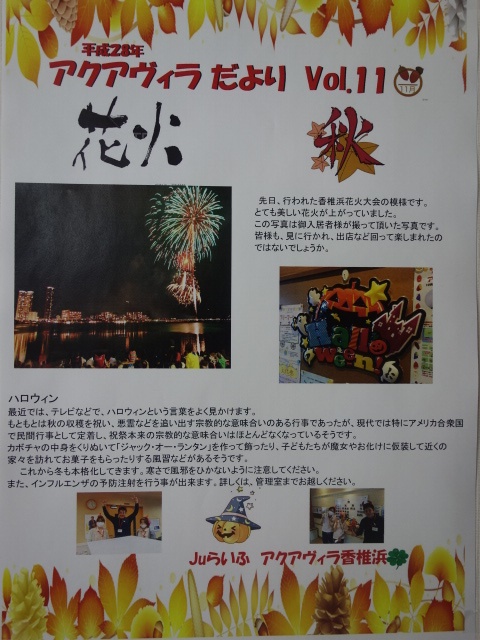 平成28年
アクアヴィラ だより Vol.11
11月
花火
秋
先日、行われた香椎浜花火大会の模様です。
とても美しい花火が上がっていました。
この写真は御入居者様が撮って頂いた写真です。
皆様も、見に行かれ、出店など回って楽しまれたの
ではないでしょうか。
Hallo
ween
ハロウィン
最近では、テレビなどで、ハロウィンという言葉をよく見かけます。
もともとは秋の収穫を祝い、悪霊などを追い出す宗教的な意味合いのある行事であったが、現代では特にアメリカ合衆国
で民間行事として定着し、祝祭本来の宗教的な意味合いはほとんどなくなっているそうです。
カボチャの中身をくりぬいて「ジャック・オー・ランタン」を作って飾ったり、子どもたちが魔女やお化けに仮装して近くの
家々を訪れてお菓子をもらったりする風習などがあるそうです。
これから冬も本格化してきます。寒さで風邪をひかないように注意してください。
また、インフルエンザの予防注射を行う事が出来ます。詳しくは、管理室までお越しください。
Juらいふ アクアヴィラ香椎浜